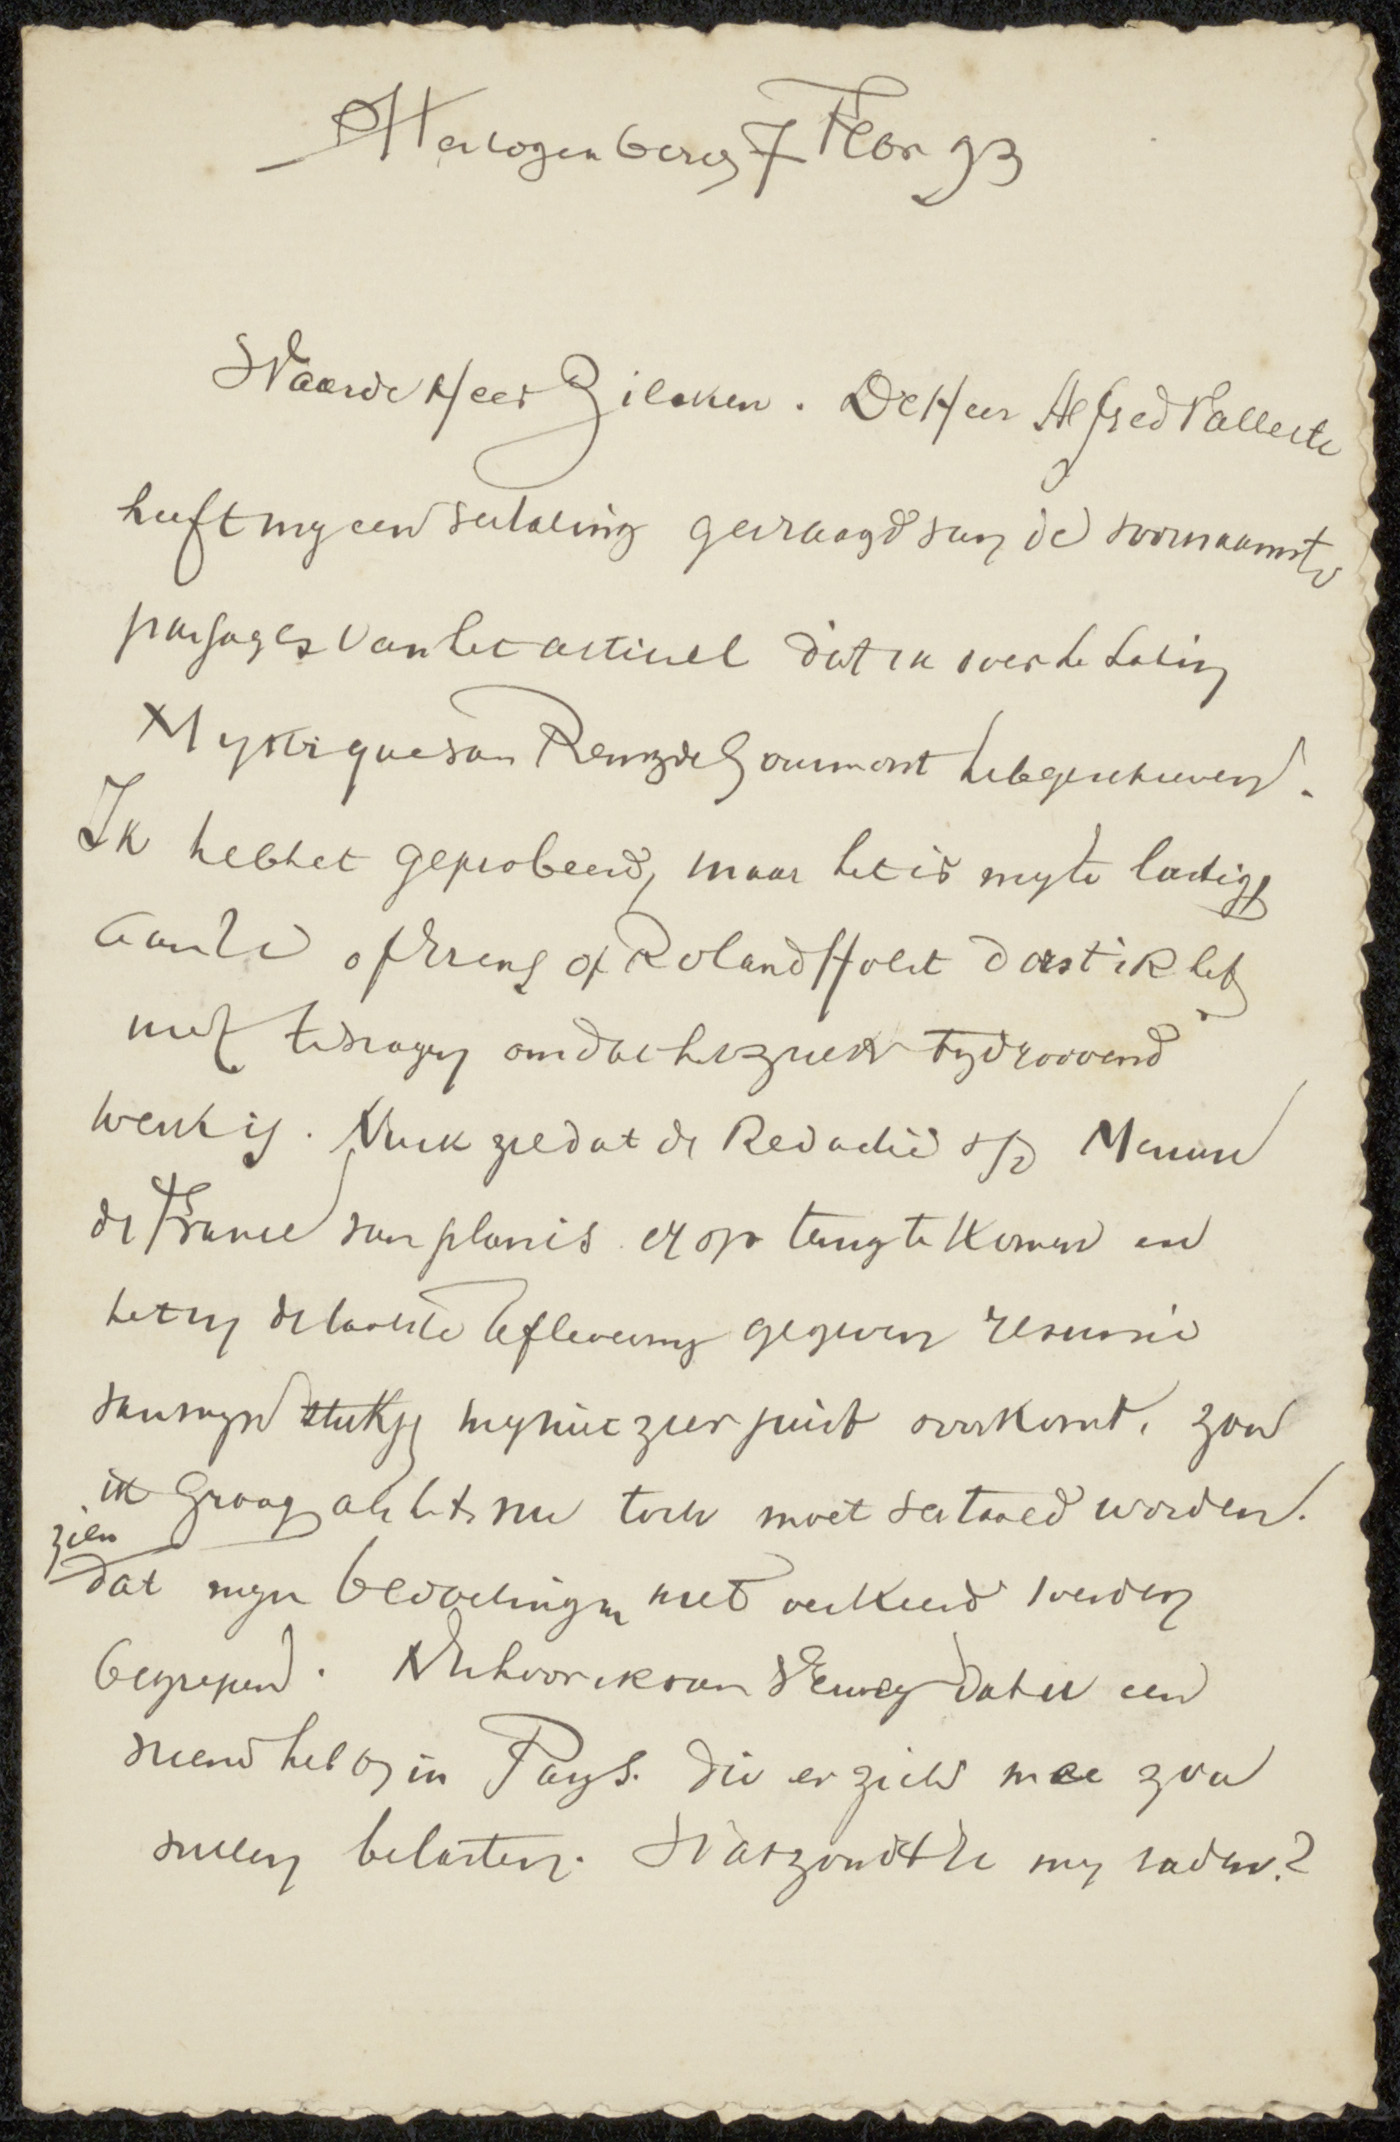 Hertogenberg 7 Febr 93
Waarde Heer Zilcken. De Heer Alfred Vallette
heeft my een vertaling gevraagd van de voornaamste
passages van het artikel dat ik over le Latin
Mystique van Remy de Gourmont heb geschreven.
Ik heb het geprobeerd, maar het is my te lastig
of Erens of Roland Holst dorst ik het
niet te vragen omdat het zulk tydroovend
werk is. Nu ik zie dat de Redactie v/d Mercure
de France van plan is er op terug te komen en
het in de laatste Aflevering gegeven resumé
van myn stukje my niet zeer juist voorkomt, zou
ik graag als het nu toch moet vertaald worden.
zien
dat myn bedoelingen niet verkeerd werden
begrepen. Nu hoor ik van Verwey dat u een
vriend hebt in Parys. die er zich mee zou
willen belasten. Wat zoudt U my raden?